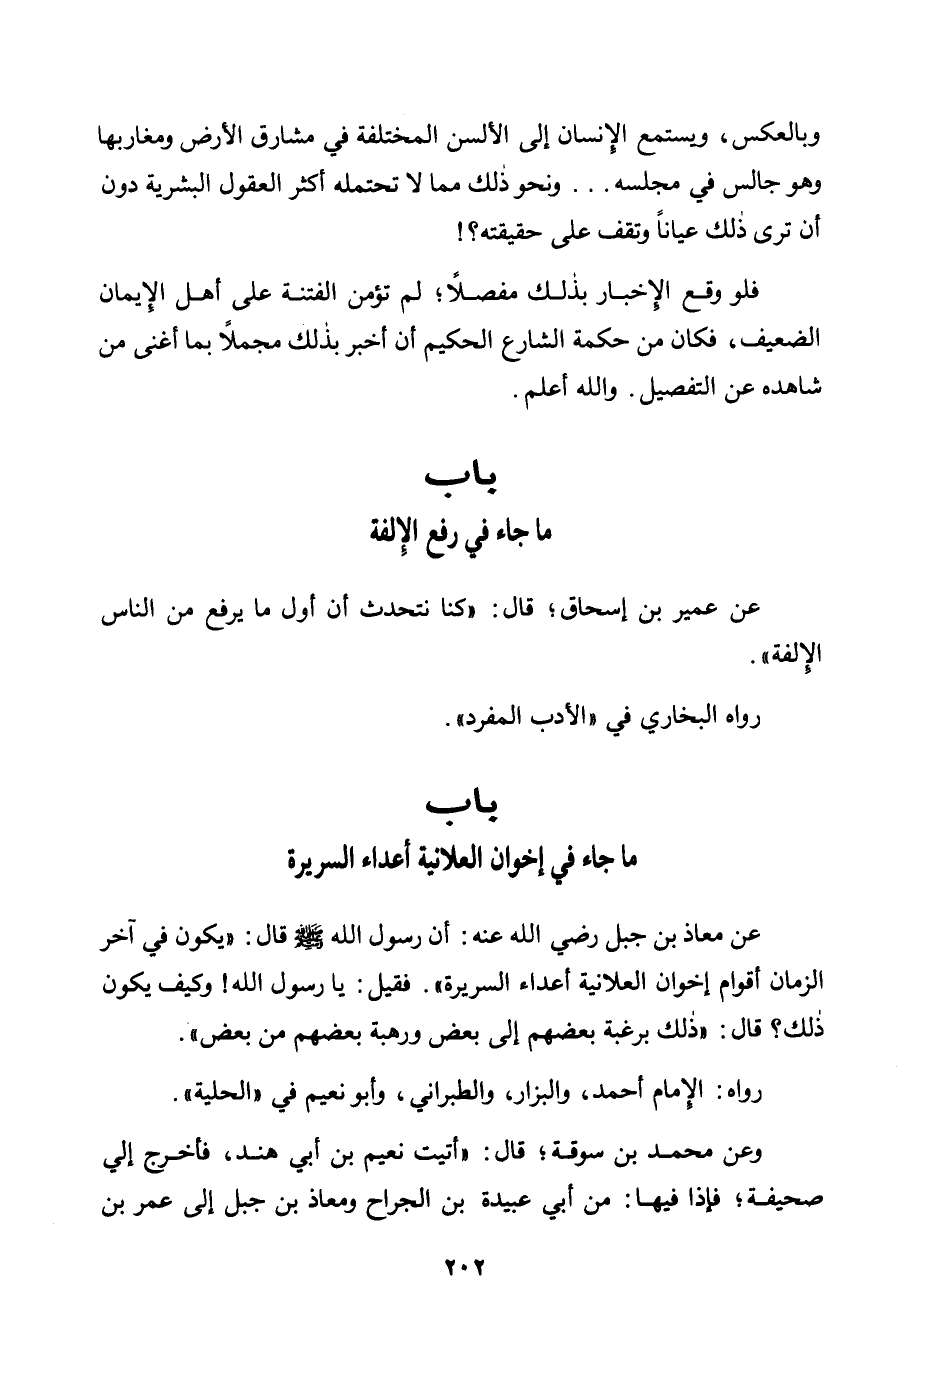 وبالعكس، ويستمع الإنسان إلى الألسن المختلفة في مشارق الأرض ومغاربها
وهو جالس في مجلسه... ونحو ذٰلك مما لا تحتمله أكثر العقول البشرية دون
أن ترى ذٰلك عياناً وتقف على حقيقته؟!
فلو وقع الإخبار بذٰلك مفصلًا؛ لم تؤمن الفتنة على أهل الإيمان
الضعيف، فكان من حكمة الشارع الحكيم أن أخبر بذٰلك مجملًا بما أغنى من
شاهده عن التفصيل. والله أعلم.
باب
ما جاء في رفع الإلفة
عن عمير بن إسحاق؛ قال: «كنا نتحدث أن أول ما يرفع من الناس
الإلفة».
رواه البخاري في «الأدب المفرد».
باب
ما جاء في إخوان العلانية أعداء السريرة
عن معاذ بن جبل رضي الله عنه: أن رسول الله ﷺ قال: «يكون في آخر
الزمان أقوام إخوان العلانية أعداء السريرة». فقيل: يا رسول الله! وكيف يكون
ذٰلك؟ قال: «ذٰلك برغبة بعضهم إلى بعض ورهبة بعضهم من بعض».
رواه: الإمام أحمد، والبزار، والطبراني، وأبو نعيم في «الحلية».
وعن محمد بن سوقة؛ قال: «أتيت نعيم بن أبي هند، فأخرج إلي
صحيفة؛ فإذا فيها: من أبي عبيدة بن الجراح ومعاذ بن جبل إلى عمر بن
٢٠٢